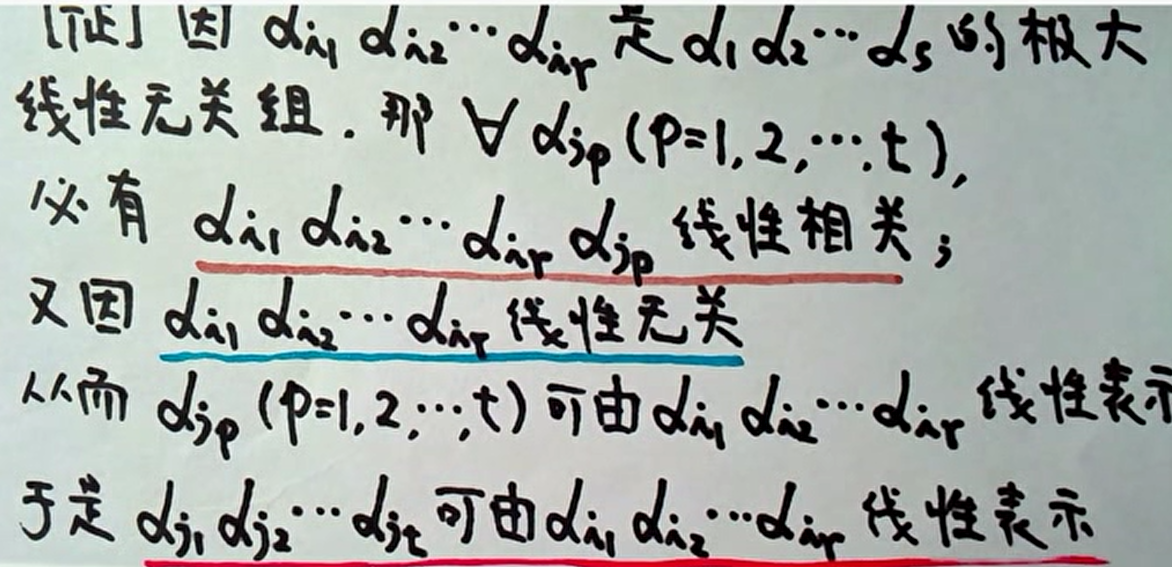 [证] 因 αi₁ αi₂ ⋯ αiᵣ 是 α₁ α₂ ⋯ αₛ 的极大
线性无关组. 那 ∀ αjₚ (p=1, 2, ⋯, t),
必有 αi₁ αi₂ ⋯ αiᵣ αjₚ 线性相关;
又因 αi₁ αi₂ ⋯ αiᵣ 线性无关
从而 αjₚ (p=1, 2, ⋯, t) 可由 αi₁ αi₂ ⋯ αiᵣ 线性表示
于是 αj₁ αj₂ ⋯ αjₜ 可由 αi₁ αi₂ ⋯ αiᵣ 线性表示